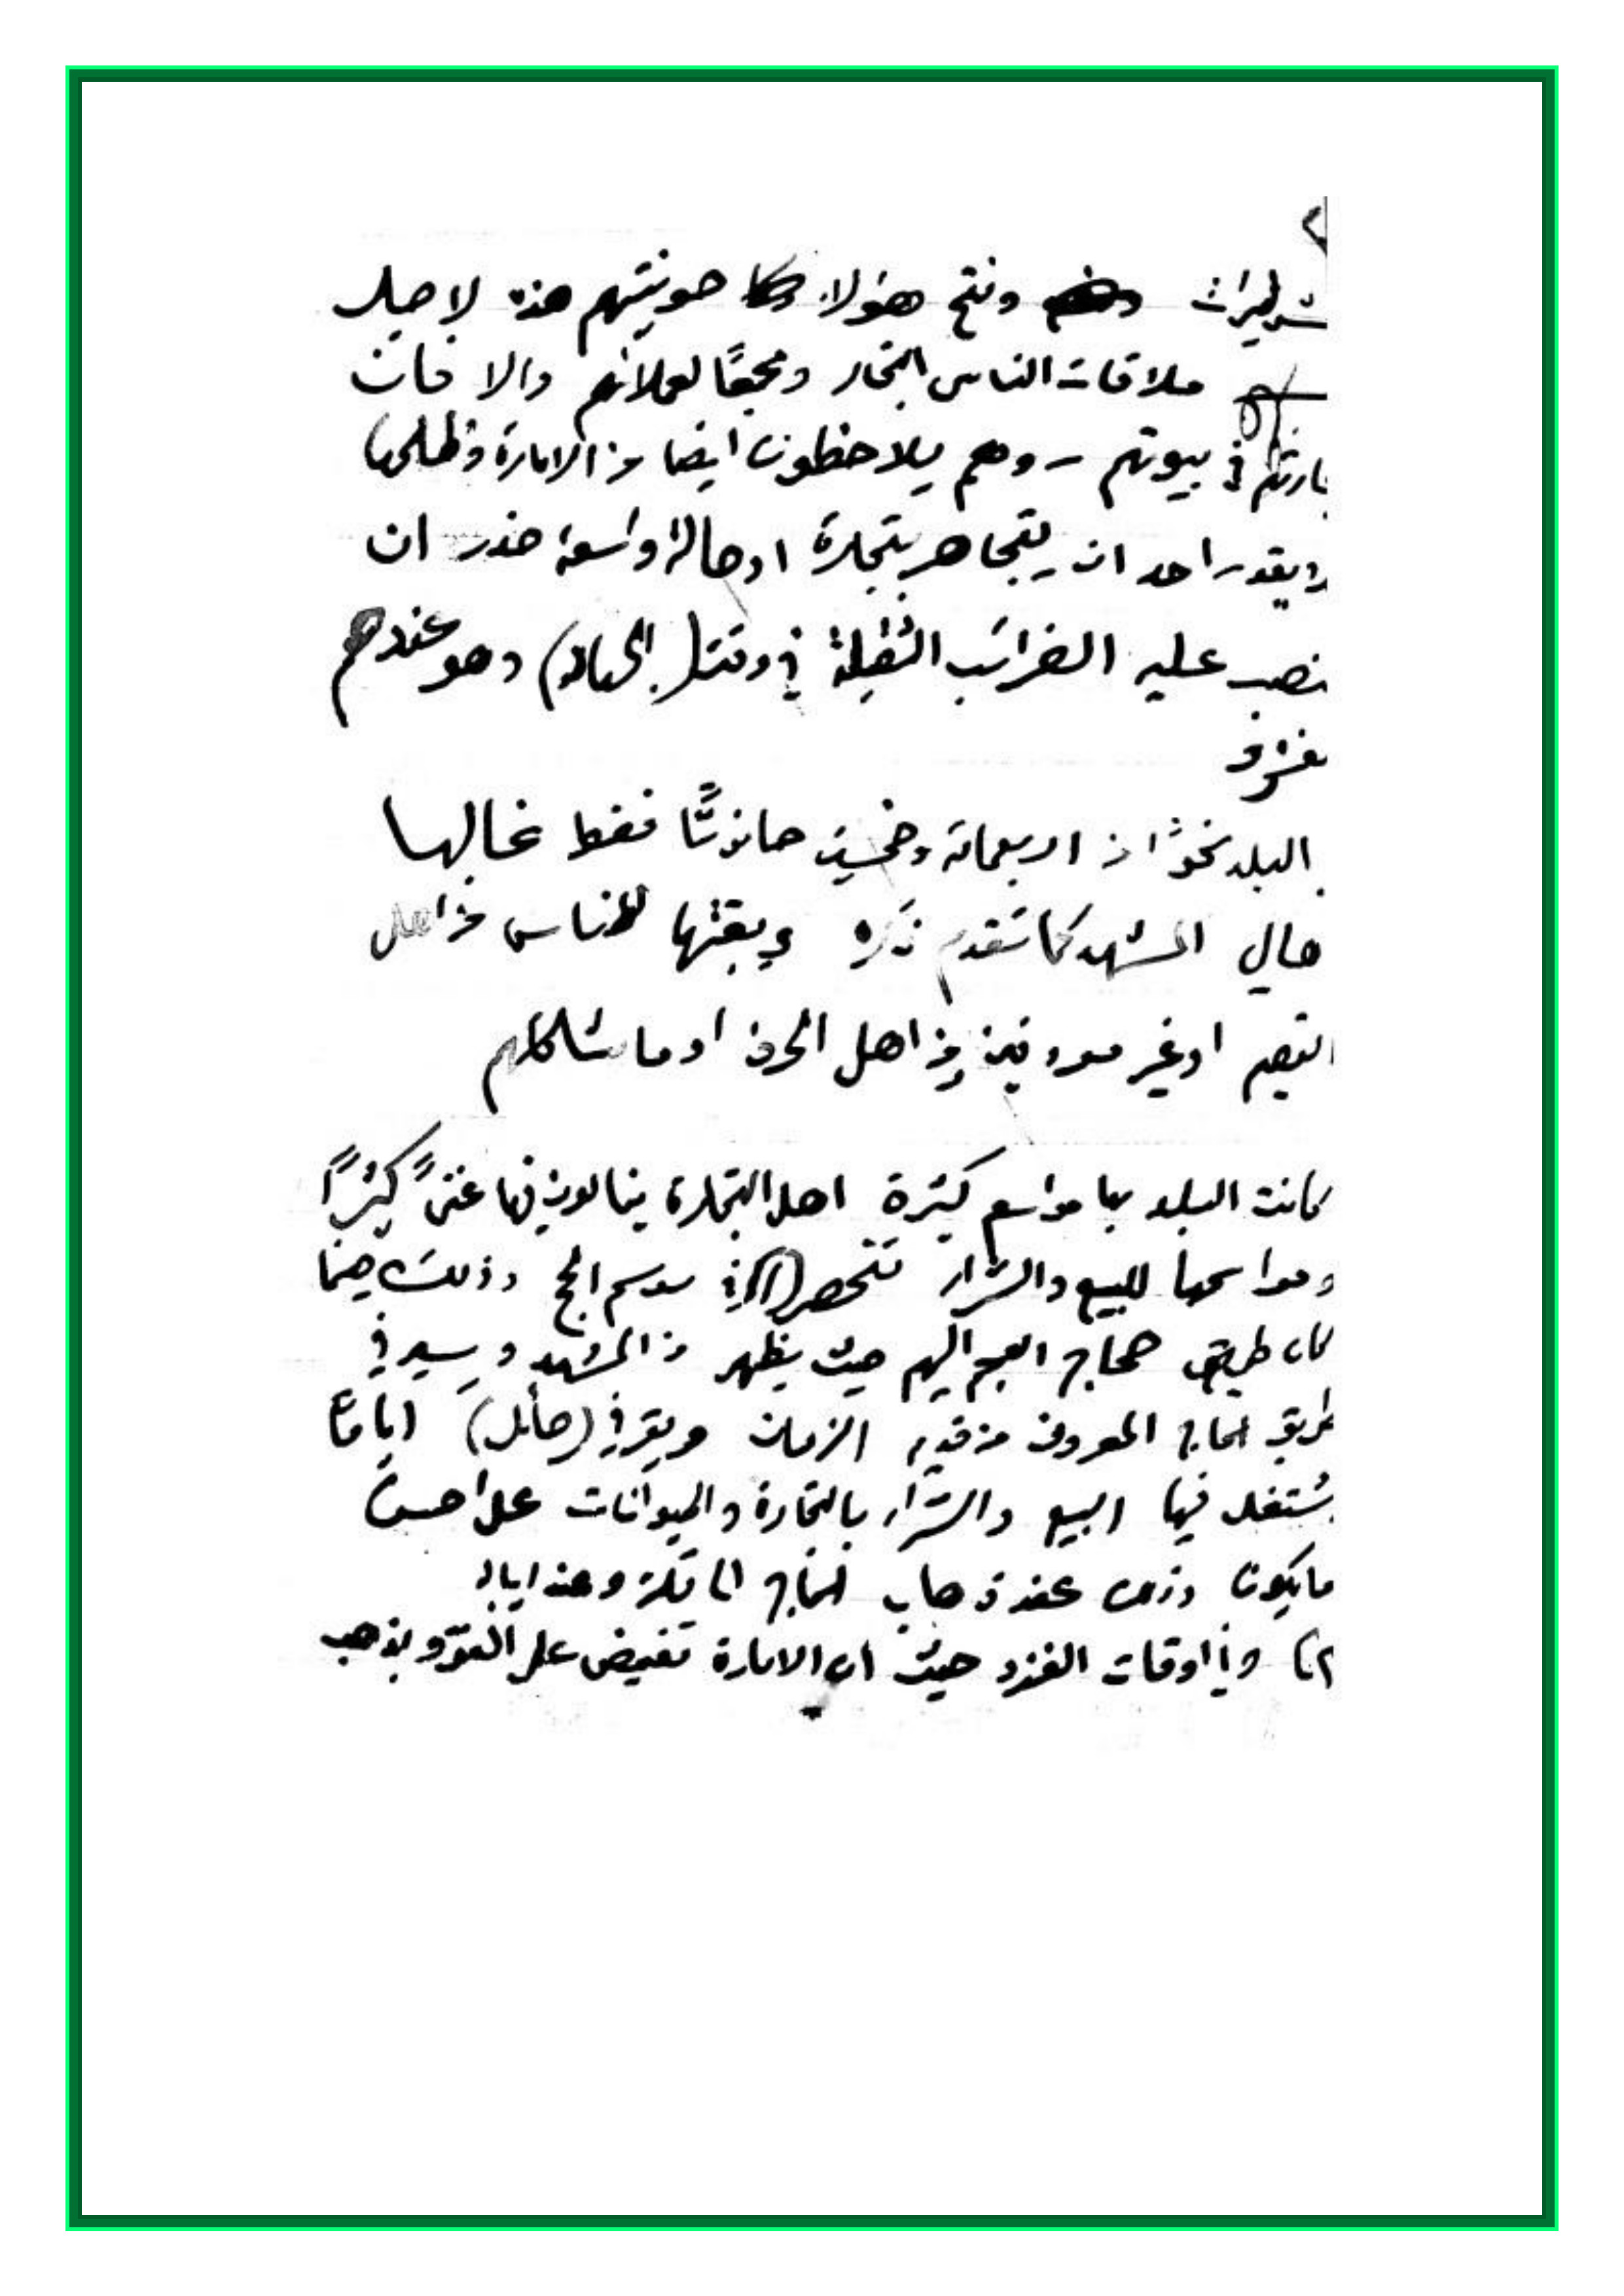 ونتح هؤلاء حونيتهم هذه لاجل
ملاقات الناس التجار ومجمعًا لعملائهم والا فان
في بيوتهم - وهم يلاحظون ايضا من الامارة وظلمها
يقدر احد ان يتجاهر بتجارة او حالة واسعة حذر ان
تصب عليه الضرائب الثقيلة في وقت (الجهاد) وهو عندهم
البلد نحوًا من اربعمائة وخمسين حانوتًا فقط غالبها
المشهد كما تقدم ذكره وبقيتها للناس من اهل
القصيم او غير من اهل الحرف او ما شاكلهم
كانت البلد بها مواسم كثيرة اهل التجارة ينالون فيها غنىً كثيرًا
ومواسمها للبيع والشراء تنحصر في موسم الحج وذلك حينما
كان طريق حجاج العجم اليهم حيث يظهر من المشهد ويسير في
طريق الحاج المعروف من قديم الزمان ويقر في (حائل) ايامًا
يشتغل فيها البيع والشراء بالتجارة والحيوانات على احسن
ما يكون وذلك عند ذهاب الحاج الى مكة وعند ايابه
وفي اوقات الغزو حيث ان الامارة تفيض على الغزو ويذهب